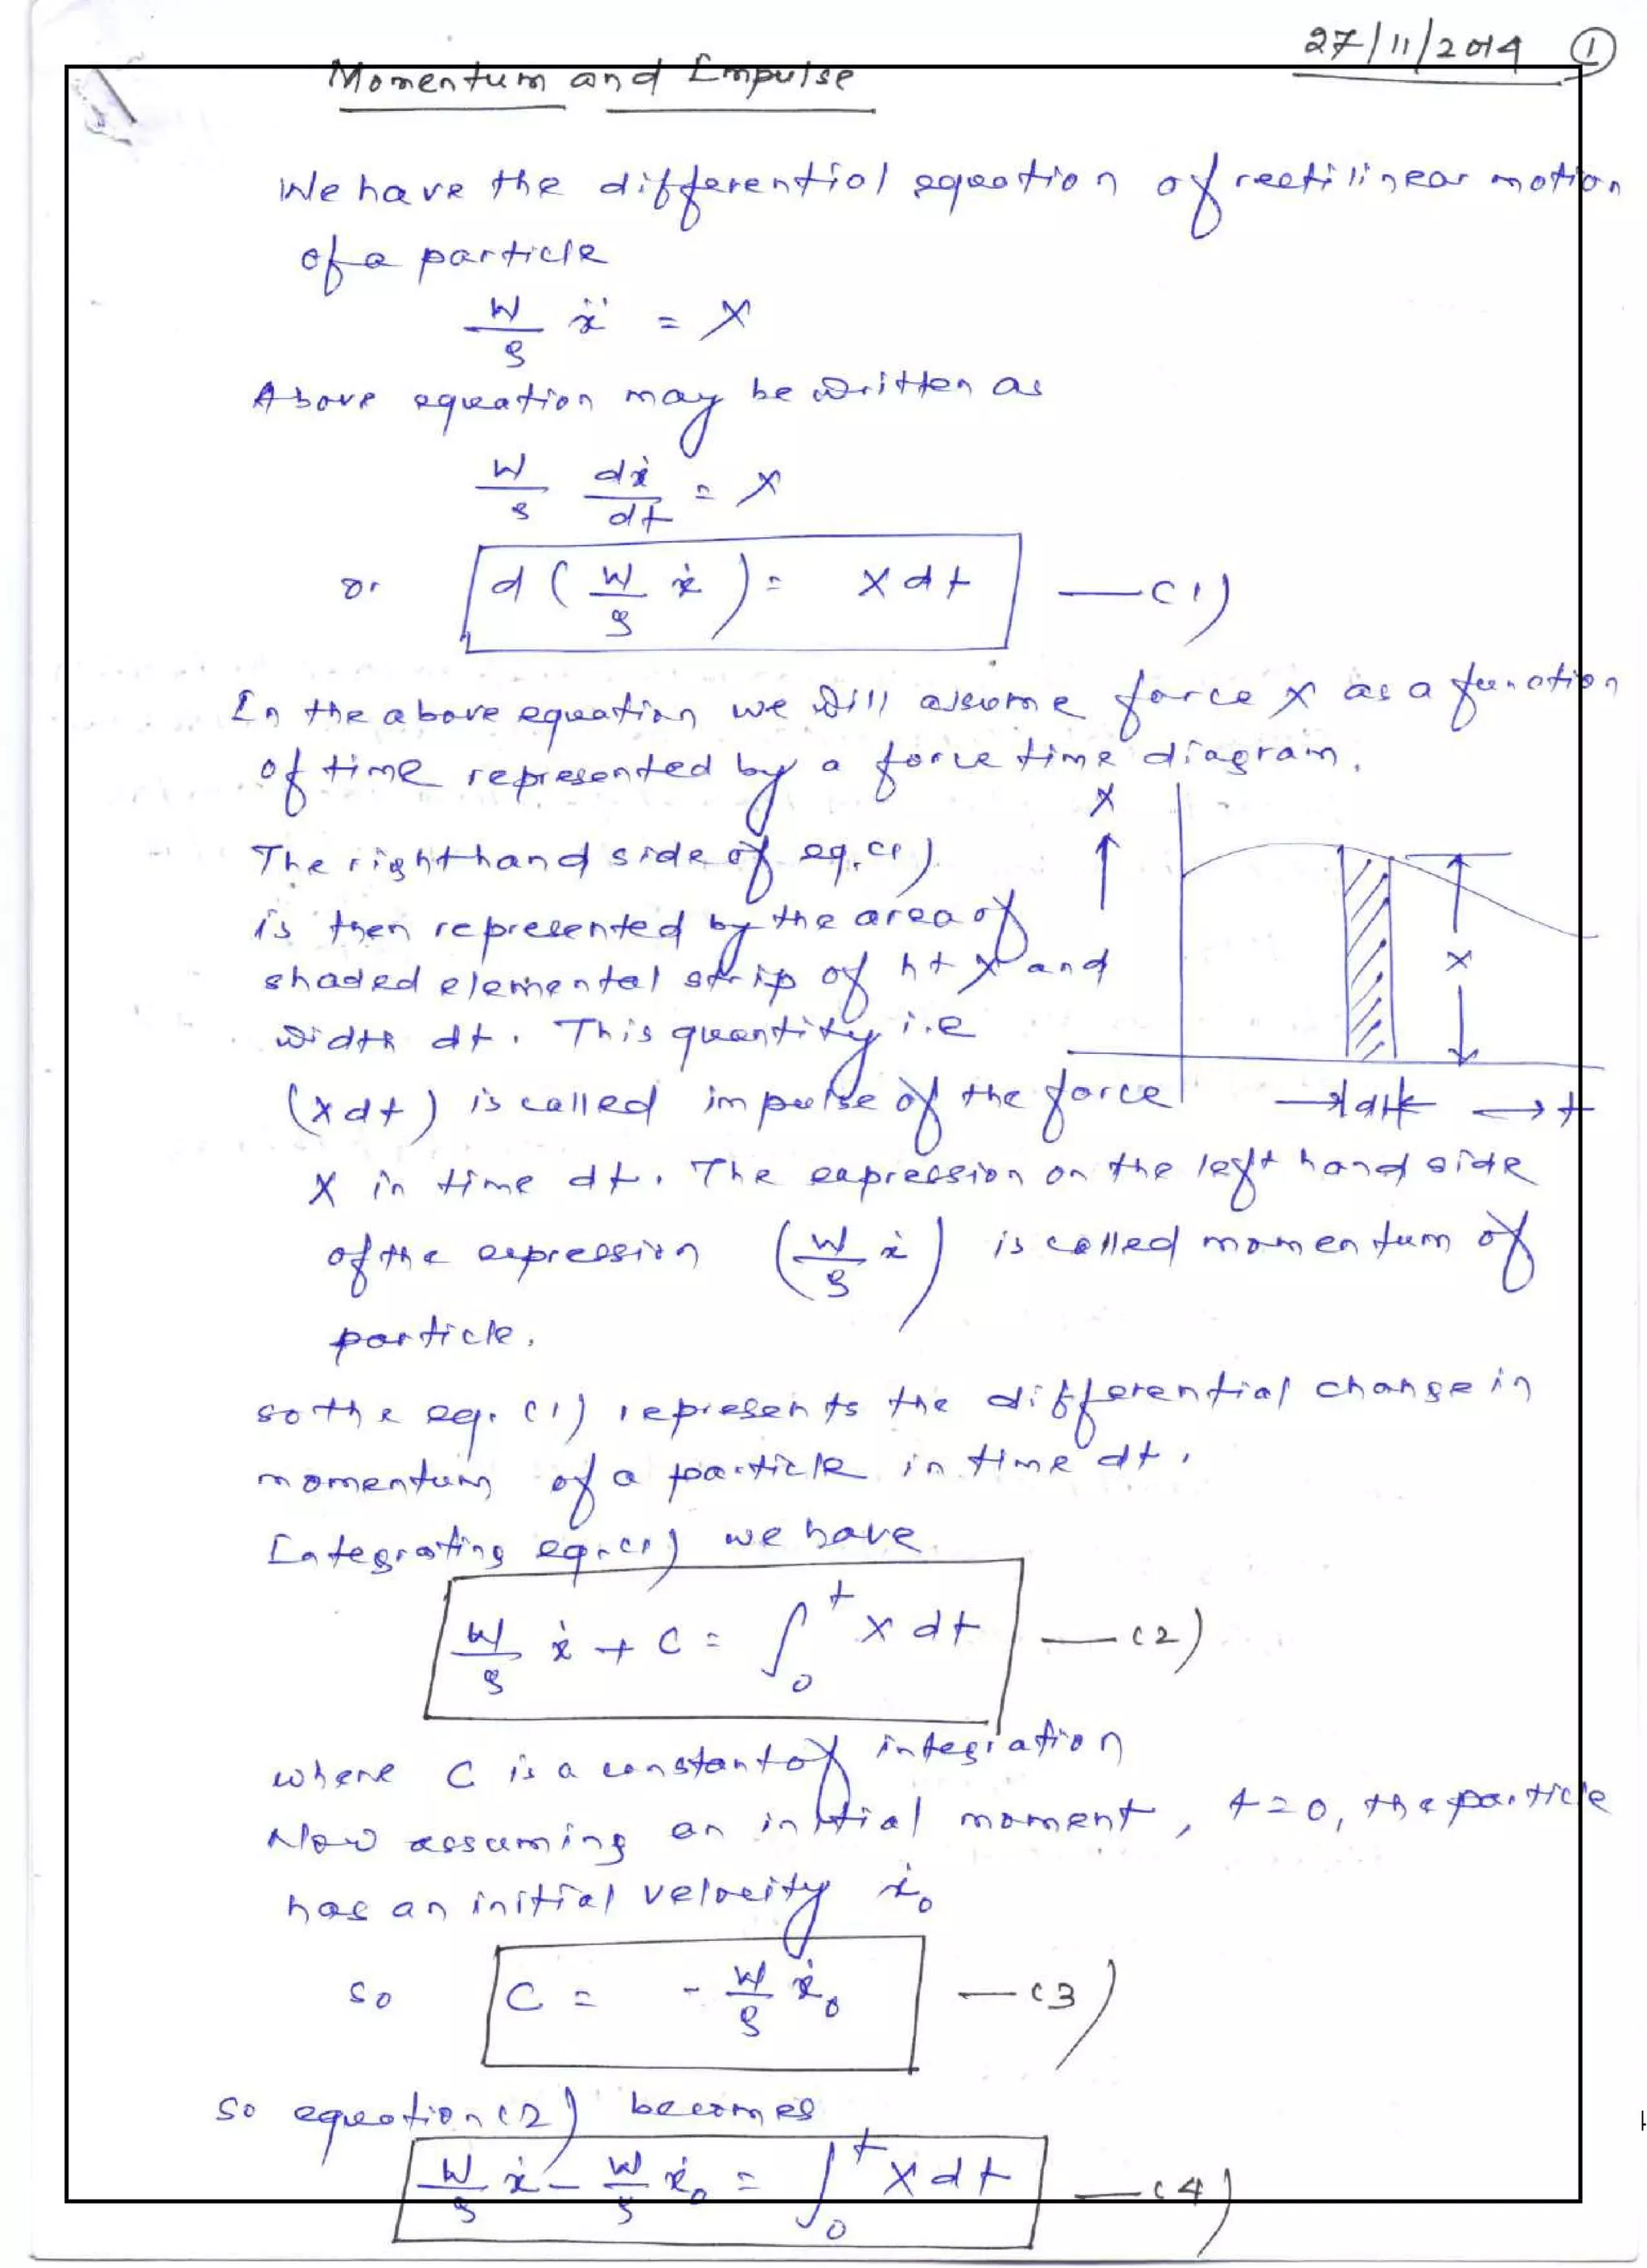 27/11/2014 ①
Momentum and Impulse
We have the differential equation of rectilinear motion
of a particle
W/g ẍ = X
Above equation may be written as
W/g dẋ/dt = X
or d(W/g ẋ) = X dt —(1)
In the above equation we will assume force X as a function
of time represented by a force time diagram.
The right hand side of eq.(1)
is then represented by the area of
shaded elemental strip of ht X and
width dt. This quantity i.e
(X dt) is called impulse of the force
X
X
dt
t
X in time dt. The expression on the left hand side
of the expression (W/g ẋ) is called momentum of
particle.
so the eq. (1) represents the differential change in
momentum of a particle in time dt.
Integrating eq.(1) we have
W/g ẋ + C = ∫₀ᵗ X dt —(2)
where C is a constant of integration
Now assuming an initial moment, t=0, the particle
has an initial velocity ẋ₀
so C = - W/g ẋ₀ —(3)
so equation (2) becomes
W/g ẋ - W/g ẋ₀ = ∫₀ᵗ X dt —(4)